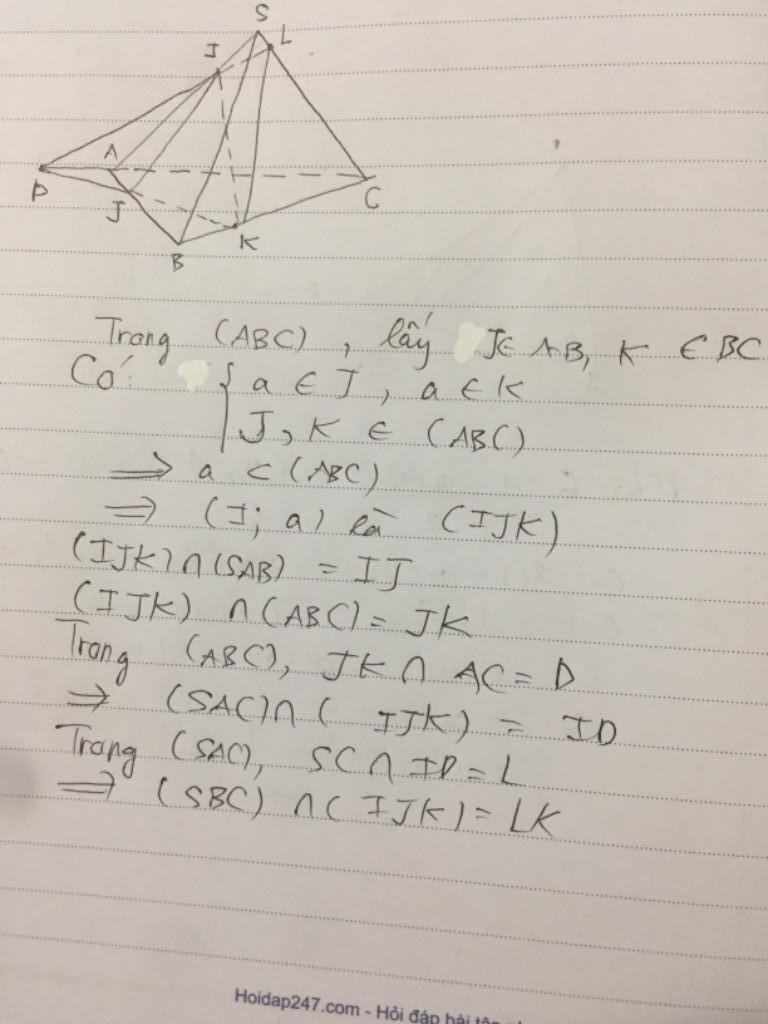 S
L
I
A
P
J
B
K
C
Trong (ABC), lấy J∈ AB, K ∈ BC
Có: { a ∈ J, a ∈ K
J, K ∈ (ABC)
⟹ a ⊂ (ABC)
⟹ (I; a) là (IJK)
(IJK)∩(SAB) = IJ
(IJK) ∩(ABC)= JK
Trong (ABC), JK ∩ AC = D
⟹ (SAC)∩( IJK) = ID
Trong (SAC), SC ∩ ID = L
⟹ (SBC) ∩( IJK) = LK
Hoidap247.com - Hỏi đáp bài tập